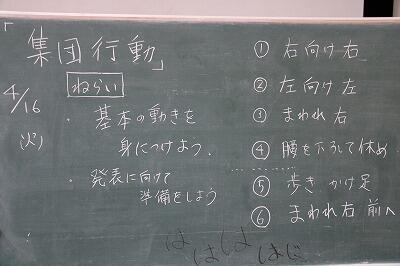 「集団行動」
4/16
(火)
ねらい
・基本の動きを
身につけよう.
・発表に向けて
準備をしよう
① 右向け右
② 左向け左
③ まわれ右
④ 腰を下ろして休め
⑤ 歩き かけ足
⑥ まわれ右前へ
は はじ